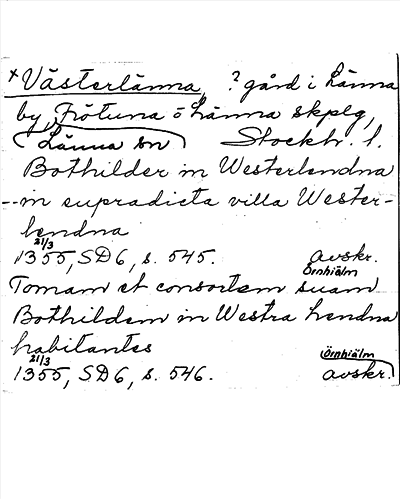 x Västerlänna, ? gård i Länna
by, Frötuna o Länna skplg,
(Länna sn) Stockh. l.
Bothilder in Westerlendna
-- in supradicta villa Wester-
lendna
21/3
1355, SD6, s. 545. avskr.
Örnhiälm
Tomam et consortem suam
Bothildem in Westra hendna
habitantes
21/3 Örnhiälm
1355, SD6, s. 546. avskr.